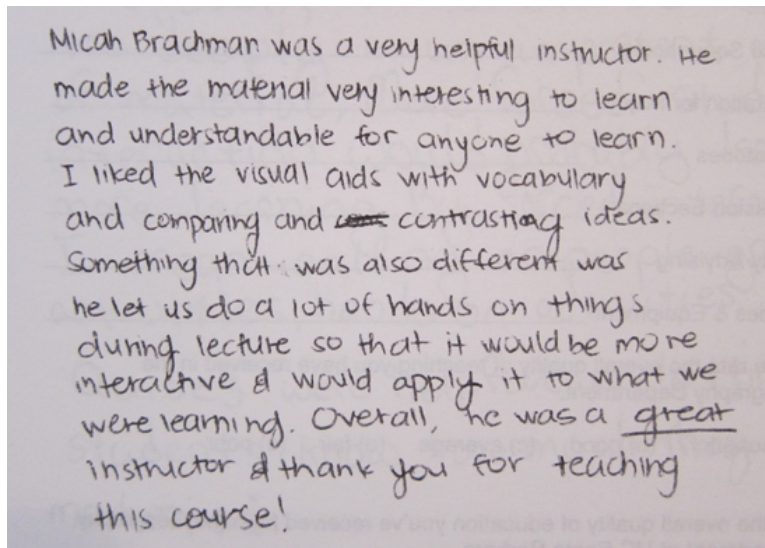 Micah Brachman was a very helpful instructor. He
made the material very interesting to learn
and understandable for anyone to learn.
I liked the visual aids with vocabullary
and comparing and contrasting ideas.
Something that was also different was
he let us do a lot of hands on things
during lecture so that it would be more
interactive & would apply it to what we
were learning. Overall, he was a great
instructor & thank you for teaching
this course!